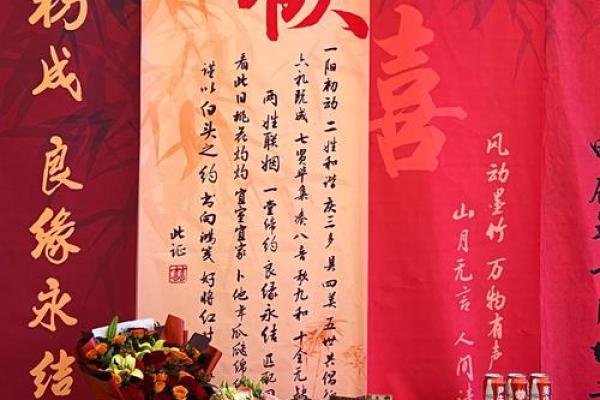 风动墨竹 万物有声
山月无言 人间
喜
一阳初动 二姓和谐 庆三多 具四美 五世其倡
六礼既成 七贤毕集 凑八音 歌九和 十全无缺
两姓联姻 一堂缔约 良缘永结 匹配同
看此日桃花灼灼 宜室宜家 卜他年瓜瓞绵
谨以白头之约 书向鸿笺 好将红叶
此证
初成 良缘永结